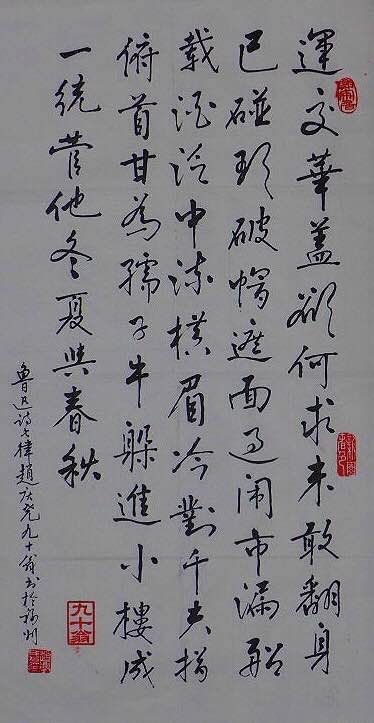 運交華蓋欲何求未敢翻身
已碰頭破帽遮面过闹市漏船
载酒泛中流横眉冷對千夫指
俯首甘為孺子牛躲進小樓成
一统管他冬夏與春秋
鲁迅诗七律趙庆尧九十翁书於福州
九十翁